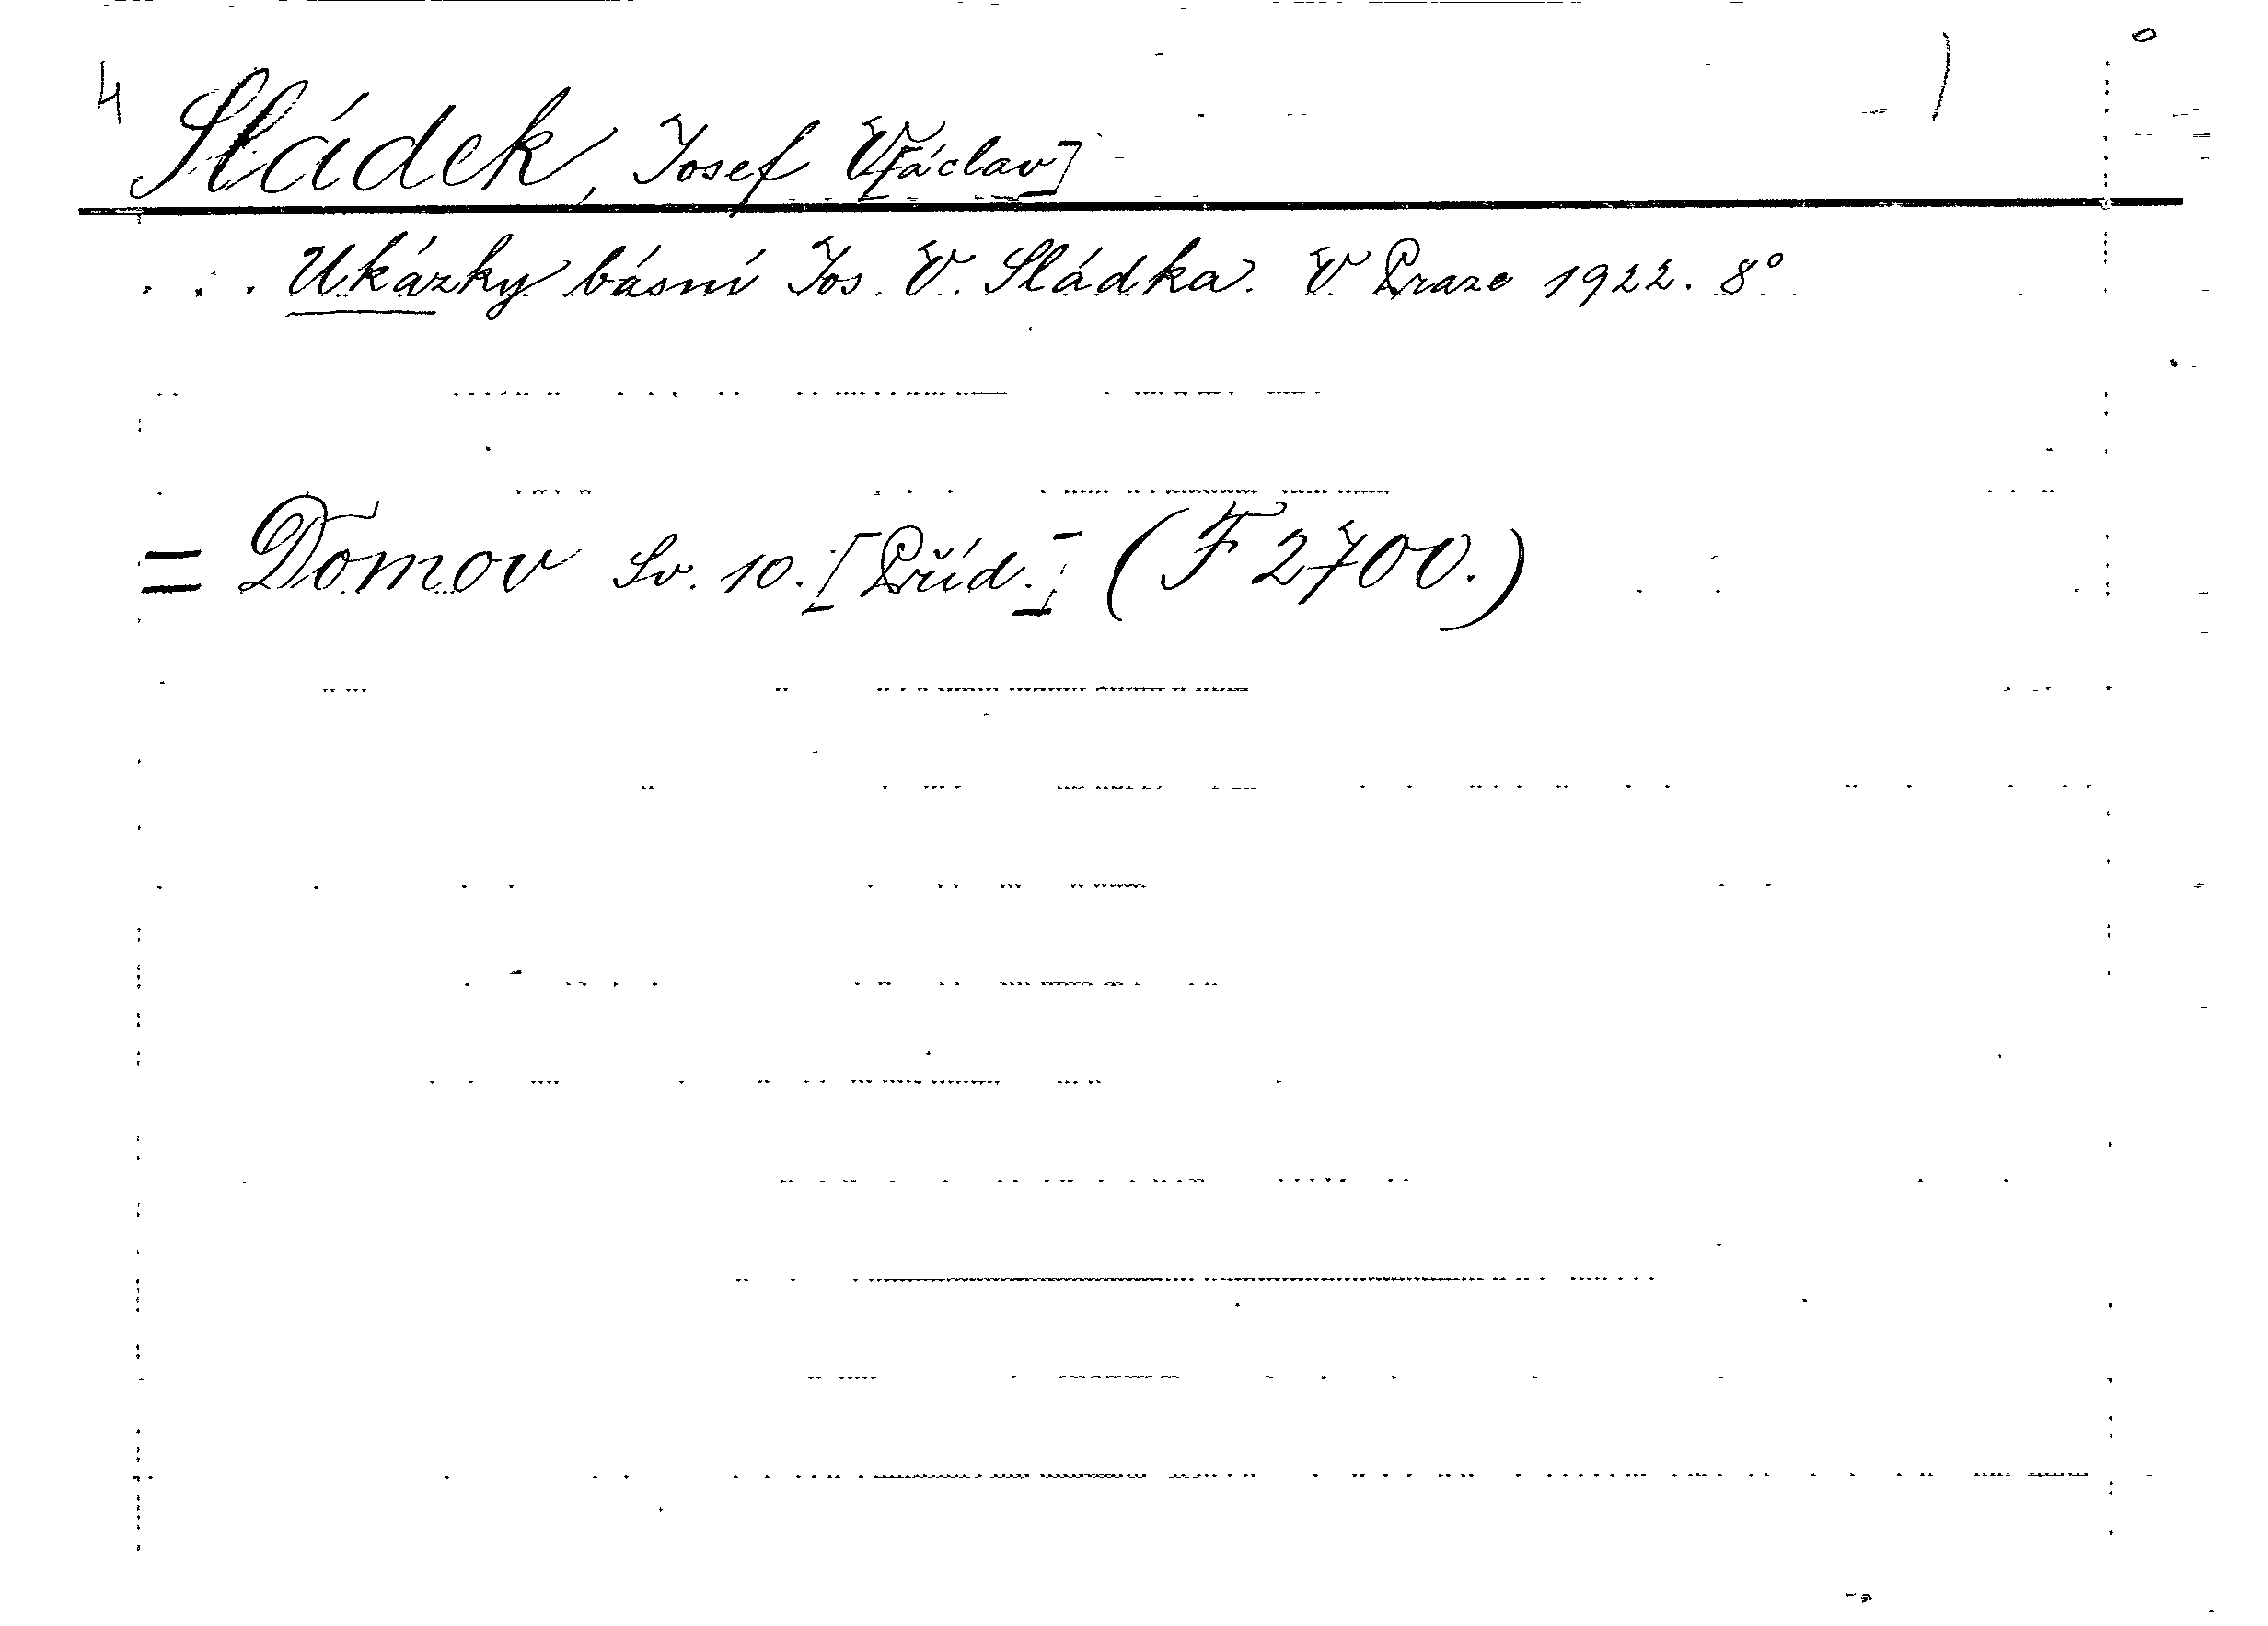 4 Sládek, Josef V[áclav]
... Ukázky básní Jos. V. Sládka. V Praze 1922. 8°
= Domov Sv. 10. [Příd.] (F 2700.)